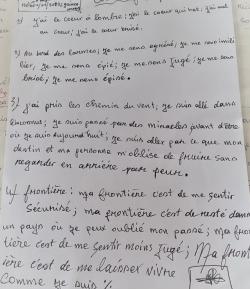 1) j'ai le cœur à l'ombre; j'ai le cœur qui bat; j'ai mal
au cœur; j'ai le cœur brisé.
2) Au bord des larmes; je me sens agressé, je me sens humi
lier, je me sens épié; je me sens jugé, je me sens
brisé; je me sens épuisé.
3) j'ai pris les chemin du vent, je suis allé dans
l'inconnus; je suis passé par des miracles avant d'être
où je suis Aujourd'huit; je suis aller par ce que mon
destin et ma personne m'oblise de fruire sans
regarder en arrière pare peure.
4) frontière; Ma frontière c'est de me sentir
Sécurisé; ma frontière c'est de resté dans
un pays où je peux oublié mon passé; Ma fron
tière c'est de me sentir moins jugé; Ma front
ière c'est de me laisser vivre
comme je suis